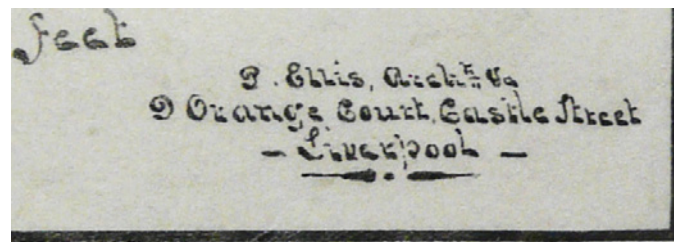 Feet
P. Ellis, Archt. &c
9 Orange Court, Castle Street
- Liverpool -